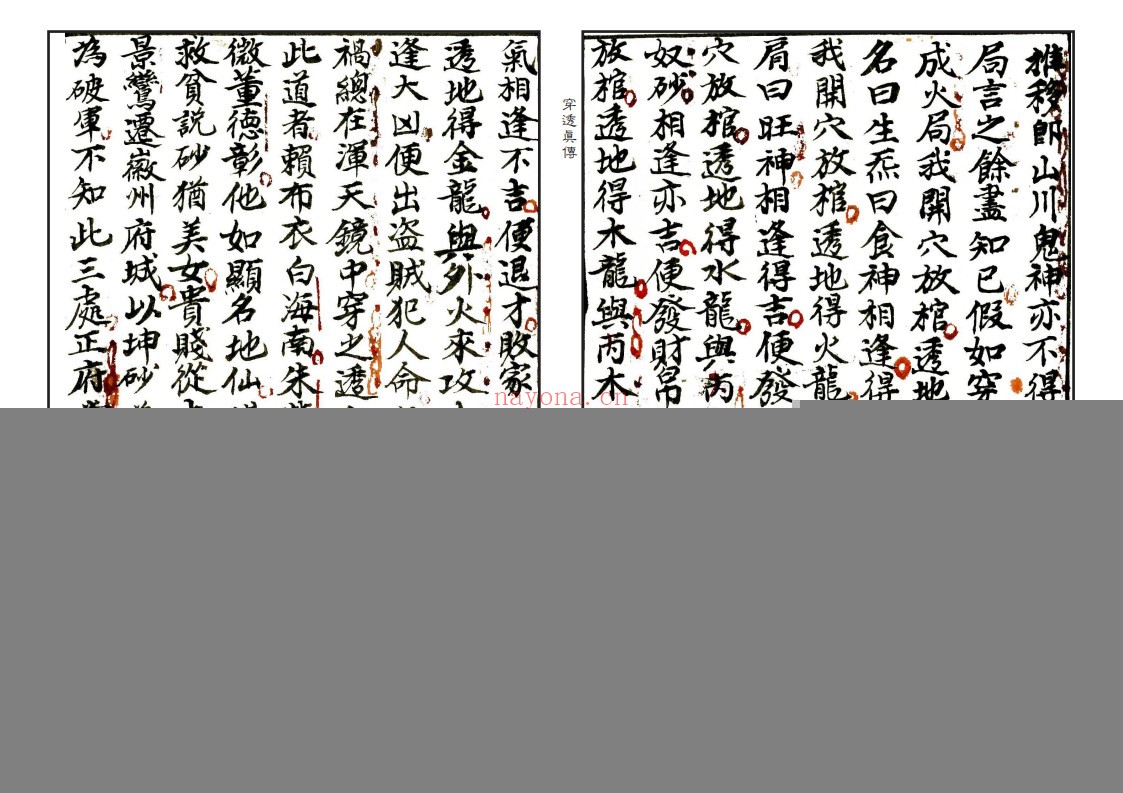 推移卽山川鬼神亦不得
局言之餘盡知已假如穿
成火局我開穴放棺透地
名曰生炁曰食神相逢得
我開穴放棺透地得火龍
肩曰旺神相逢得吉便發
穴放棺透地得水龍與丙
奴砂相逢亦吉便發財帛
放棺透地得木龍與丙木
穿透眞傳
氣相逢不吉便退才敗家
透地得金龍與外火來攻
逢大凶便出盗賊犯人命
禍總在渾天鏡中穿之透
此道者賴布衣白海南朱
微董德彰他如顯名地仙
救貧説砂猶美女貴賤從
景鸞遷徽州府城以坤砂
為破軍不知此三處正府
nayona.cn